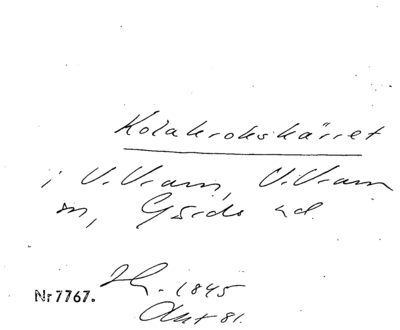 Kolakrokskärret
i V. Vram, V. Vram
sn, Gärds hd.
1845
Nr 7767.
Akt 81.